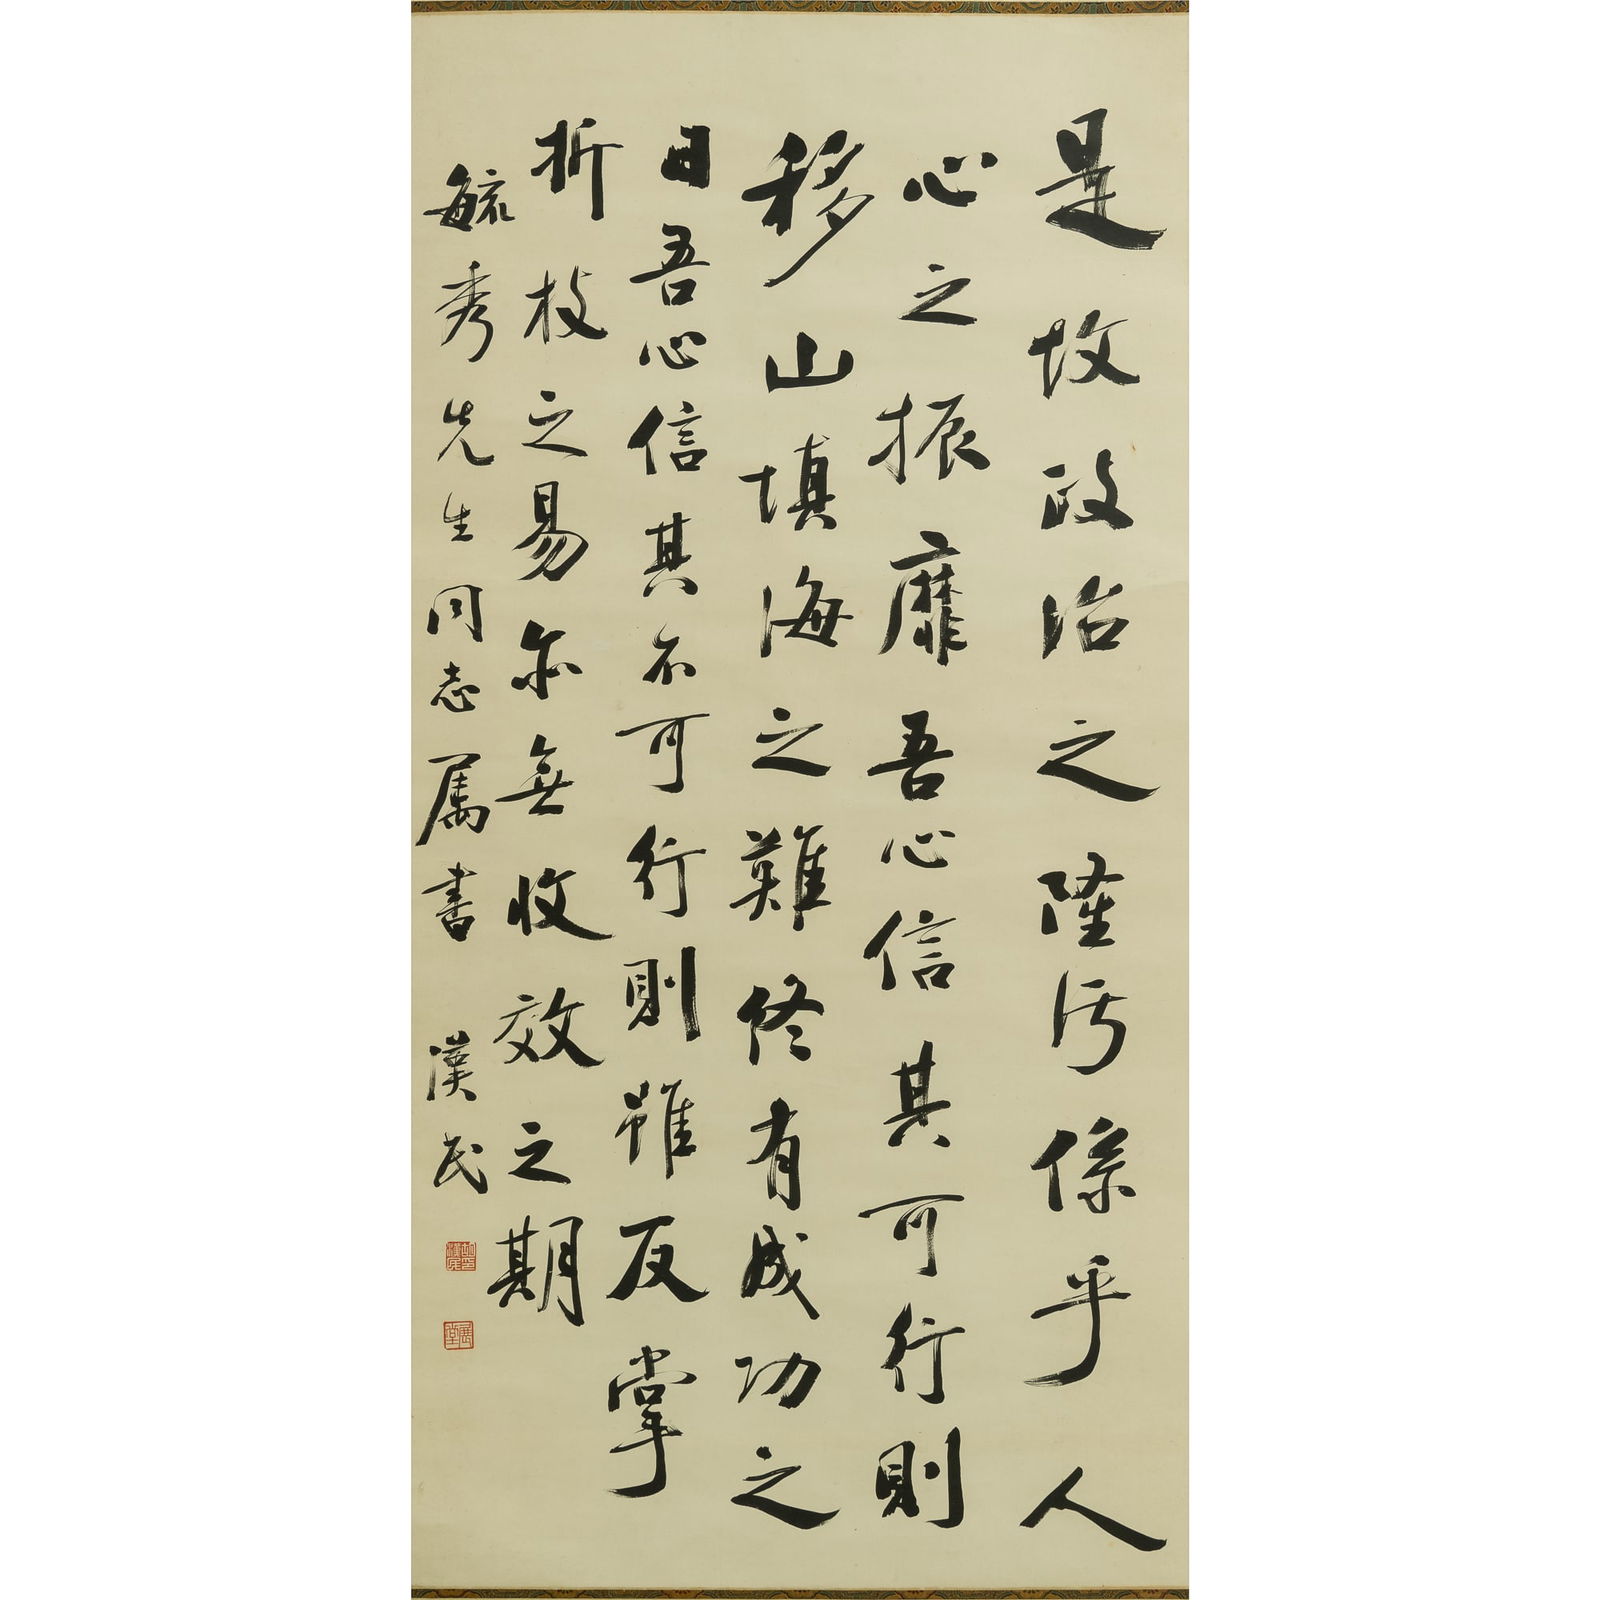 是故政治之隆污係乎人
心之振靡吾心信其可行則
移山填海之難終有成功之
日吾心信其不可行則雖反掌
折枝之易亦無收效之期
毓秀先生同志属書 漢民
胡漢民印
展堂